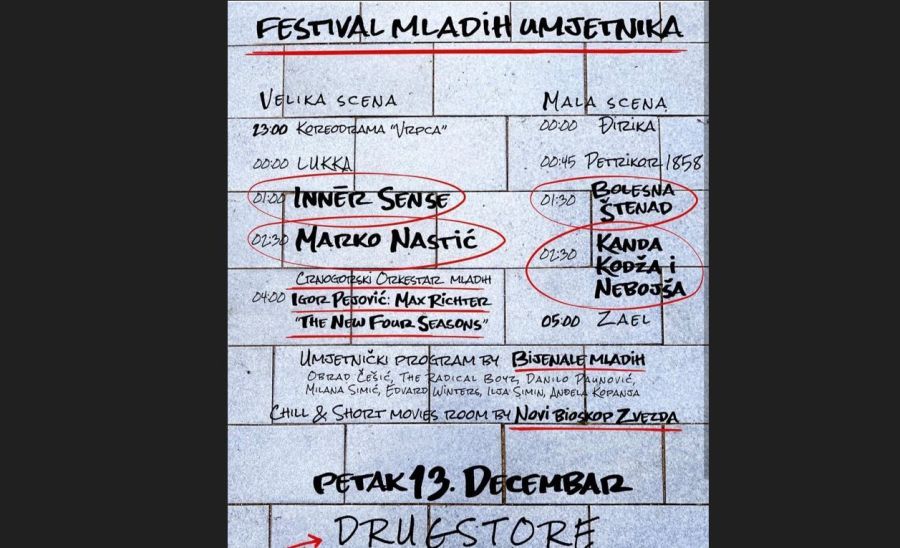 FESTIVAL MLADIH UMJETNIKA
VELIKA SCENA
23:00 KOREODRAMA "VRPCA"
00:00 LUKKA
01:00 INNĒR SENSE
02:30 MARKO NASTIĆ
CRNOGORSKI ORKESTAR MLADIH
04:00 IGOR PEJOVIĆ: MAX RICHTER
"THE NEW FOUR SEASONS"
MALA SCENA
00:00 ĐIRIKA
00:45 PETRIKOR 1858
01:30 BOLESNA
ŠTENAD
02:30 KANDA
KODŽA I
NEBOJŠA
05:00 ZAEL
UMJETNIČKI PROGRAM BY BIJENALE MLADIH
OBRAD ČEŠIĆ, THE RADICAL BOYZ, DANILO PAUNOVIĆ,
MILANA SIMIĆ, EDVARD WINTERS, ILJA SIMIN, ANĐELA KOPANJA
CHILL & SHORT MOVIES ROOM BY NOVI BIOSKOP ZVEZDA
PETAK 13. DECEMBAR
DRUGSTORE